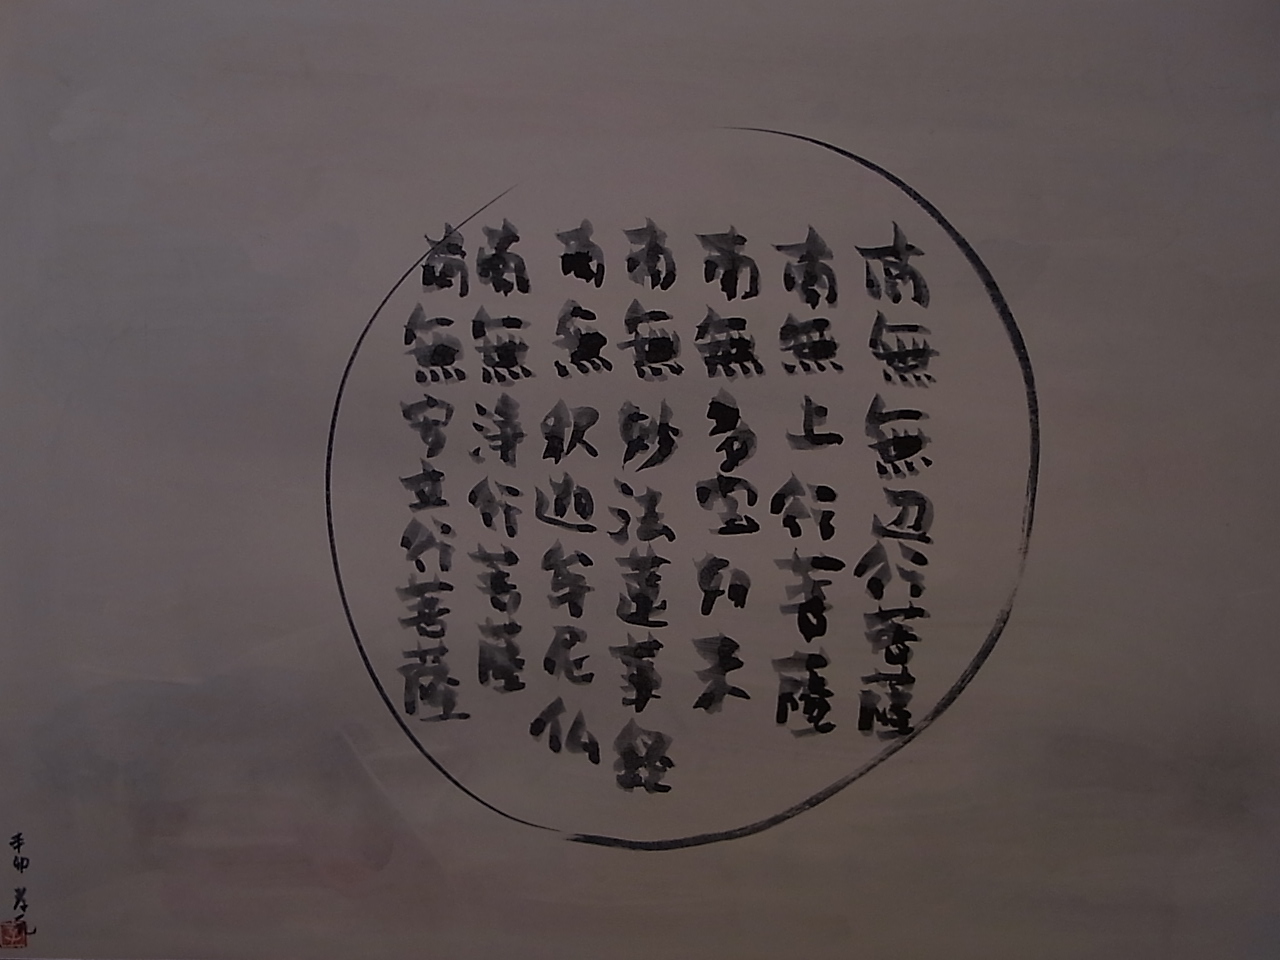 南無無辺行菩薩
南無上行菩薩
南無多宝如来
南無妙法蓮華経
南無釈迦牟尼仏
南無浄行菩薩
南無安立行菩薩
辛卯